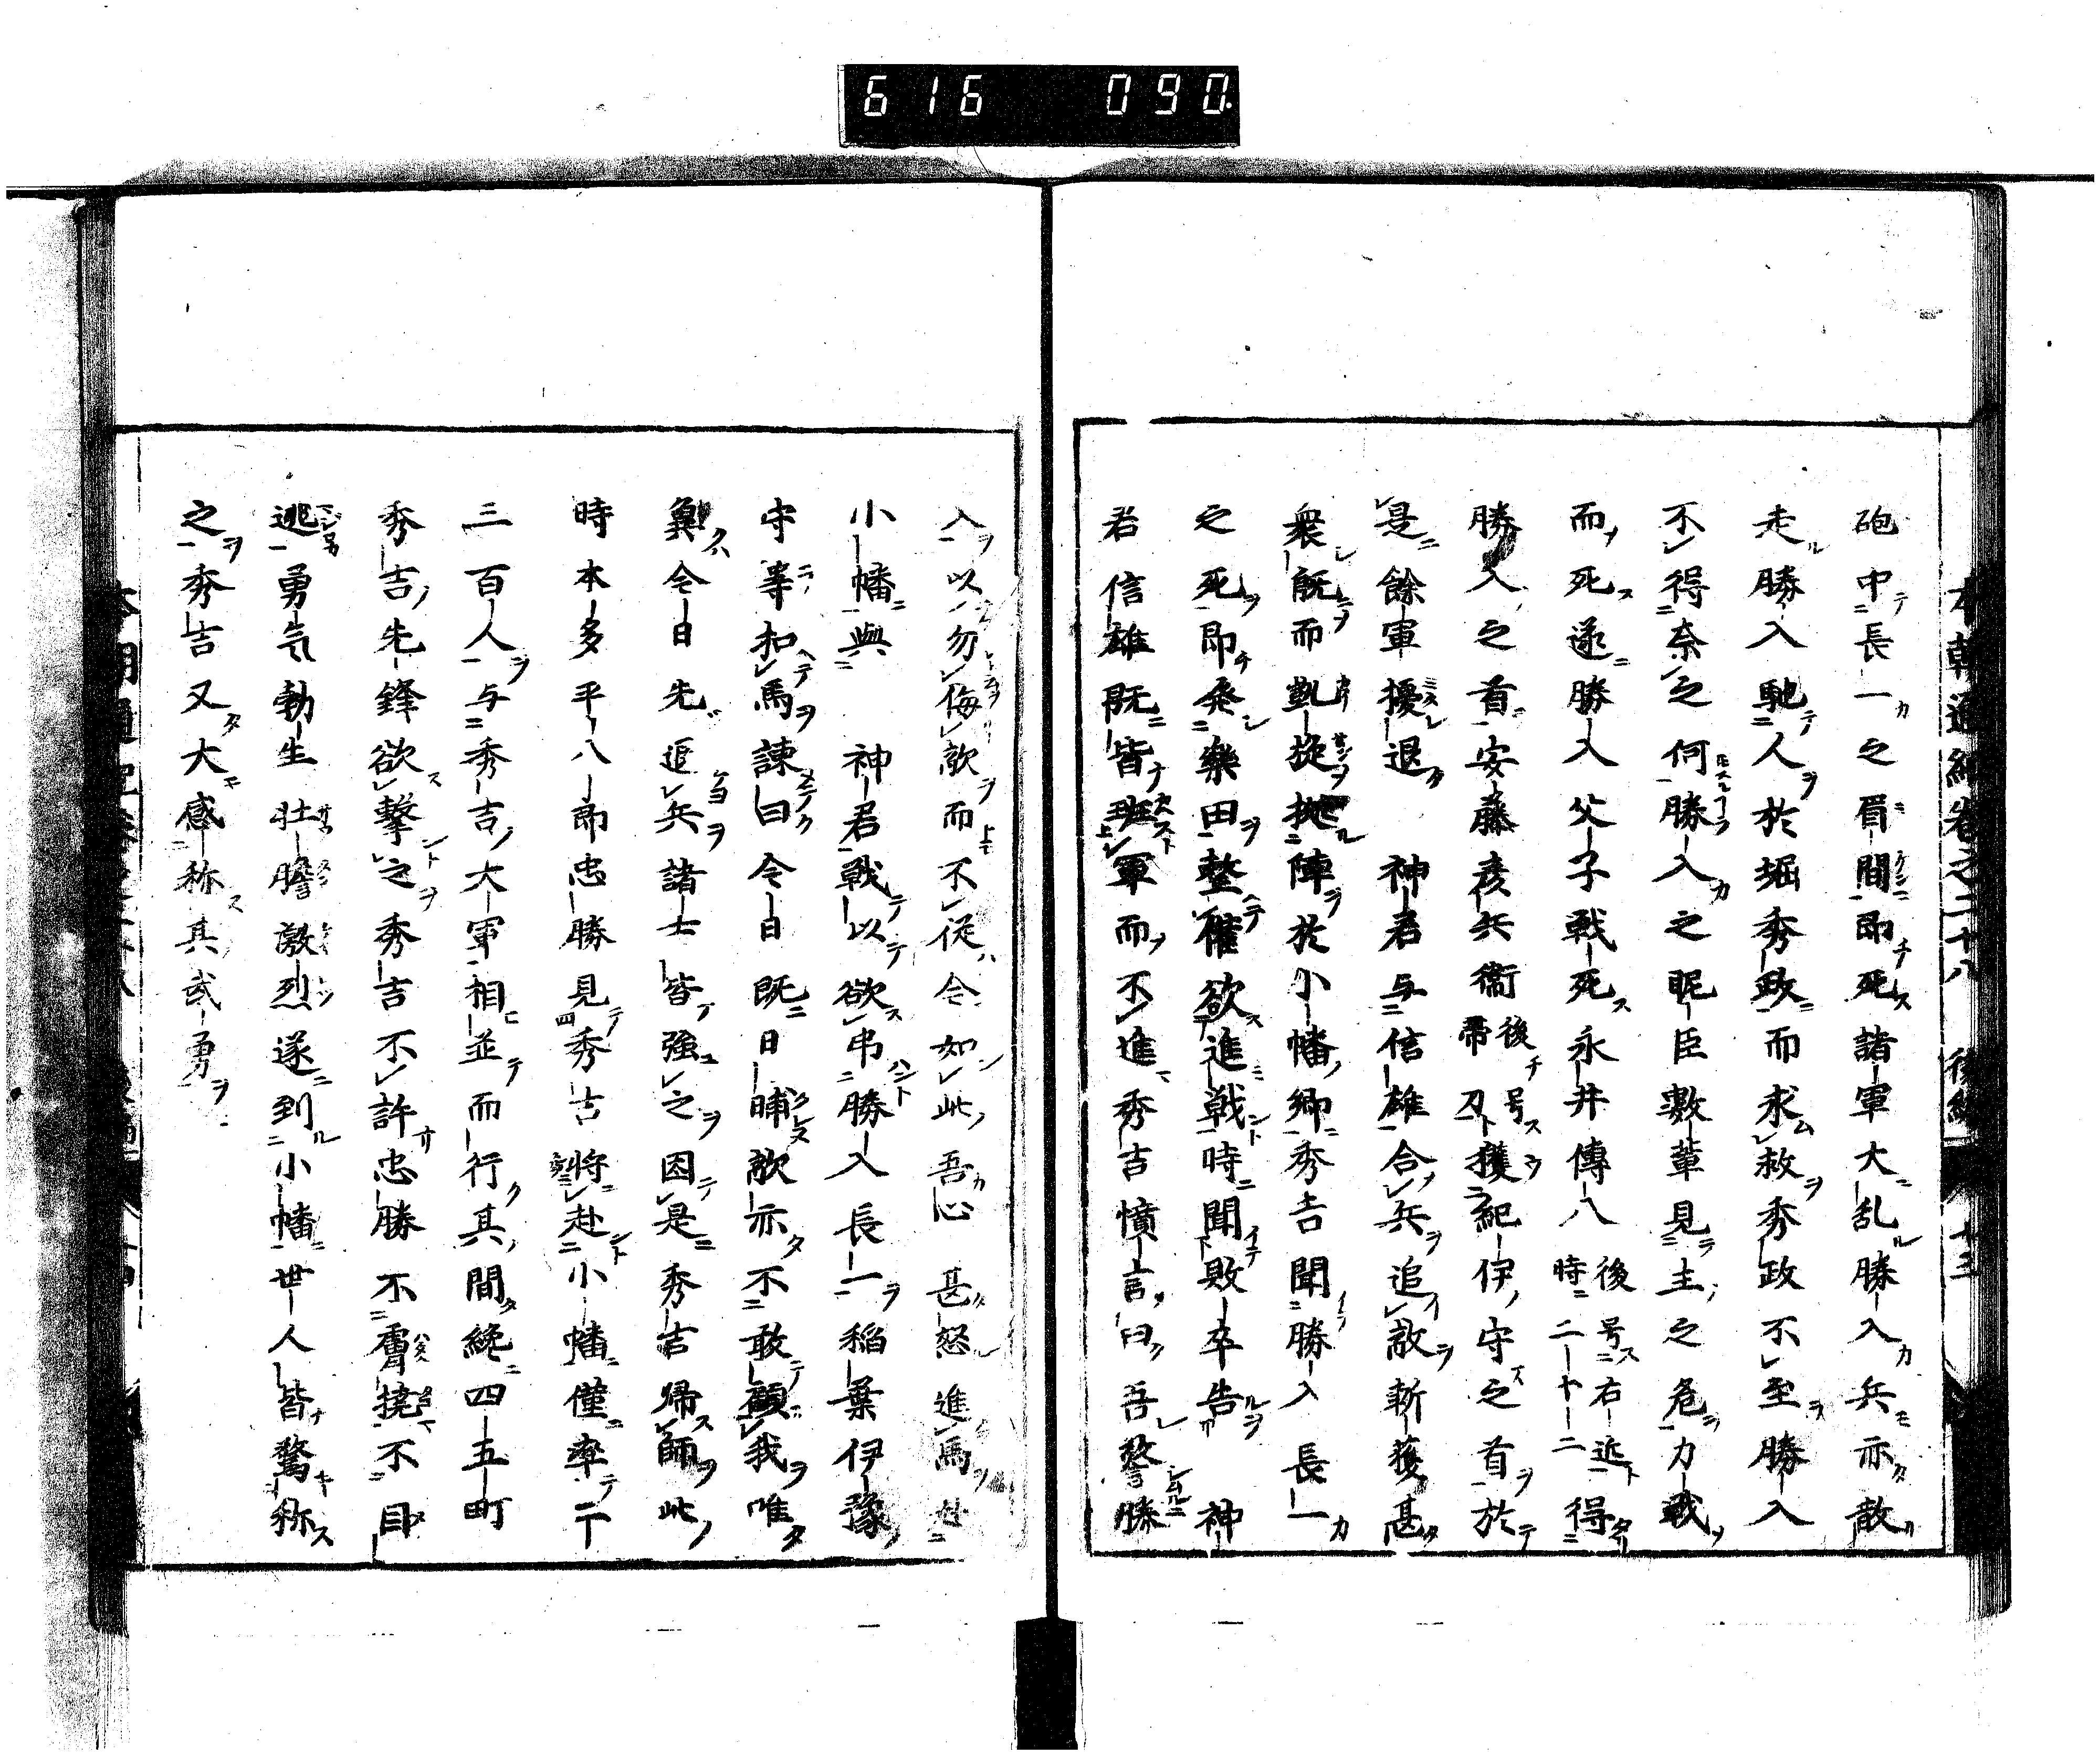 616 090
本朝通紀卷之二十八 後編 十三
砲中長一之眉間即死諸軍大乱勝入兵亦散
走勝入馳人於堀秀政而求救秀政不至勝入
不得奈之何勝入之昵臣數輩見主之危力戰
而死遂勝入父子戰死永井傳八後号右近時二十二得
勝入之首安藤彦兵衞後号帶刀獲紀伊守之首於
是餘軍擾退 神君与信雄合兵追敵斬獲甚
衆既而凱旋挑陣於小幡鄉秀吉聞勝入長一
之死即発樂田整催欲進戰時聞敗卒告 神
君信雄既皆班軍而不進秀吉憤言曰吾警勝
入以勿侮敵而不從令如此吾心甚怒進馬赴
小幡與 神君戰以欲弔勝入長一稲葉伊豫
守等扣馬諫曰今日既日晡敵亦不敢顧我唯
冀今日先返兵諸士皆強之因是秀吉歸師此
時本多平八郎忠勝見秀吉將赴小幡僅率二
三百人与秀吉大軍相並而行其間纔四五町
秀吉先鋒欲擊之秀吉不許忠勝不膚撓不目
逃勇気勃生壮膽激烈遂到小幡世人皆驚称
之秀吉又大感称其武勇